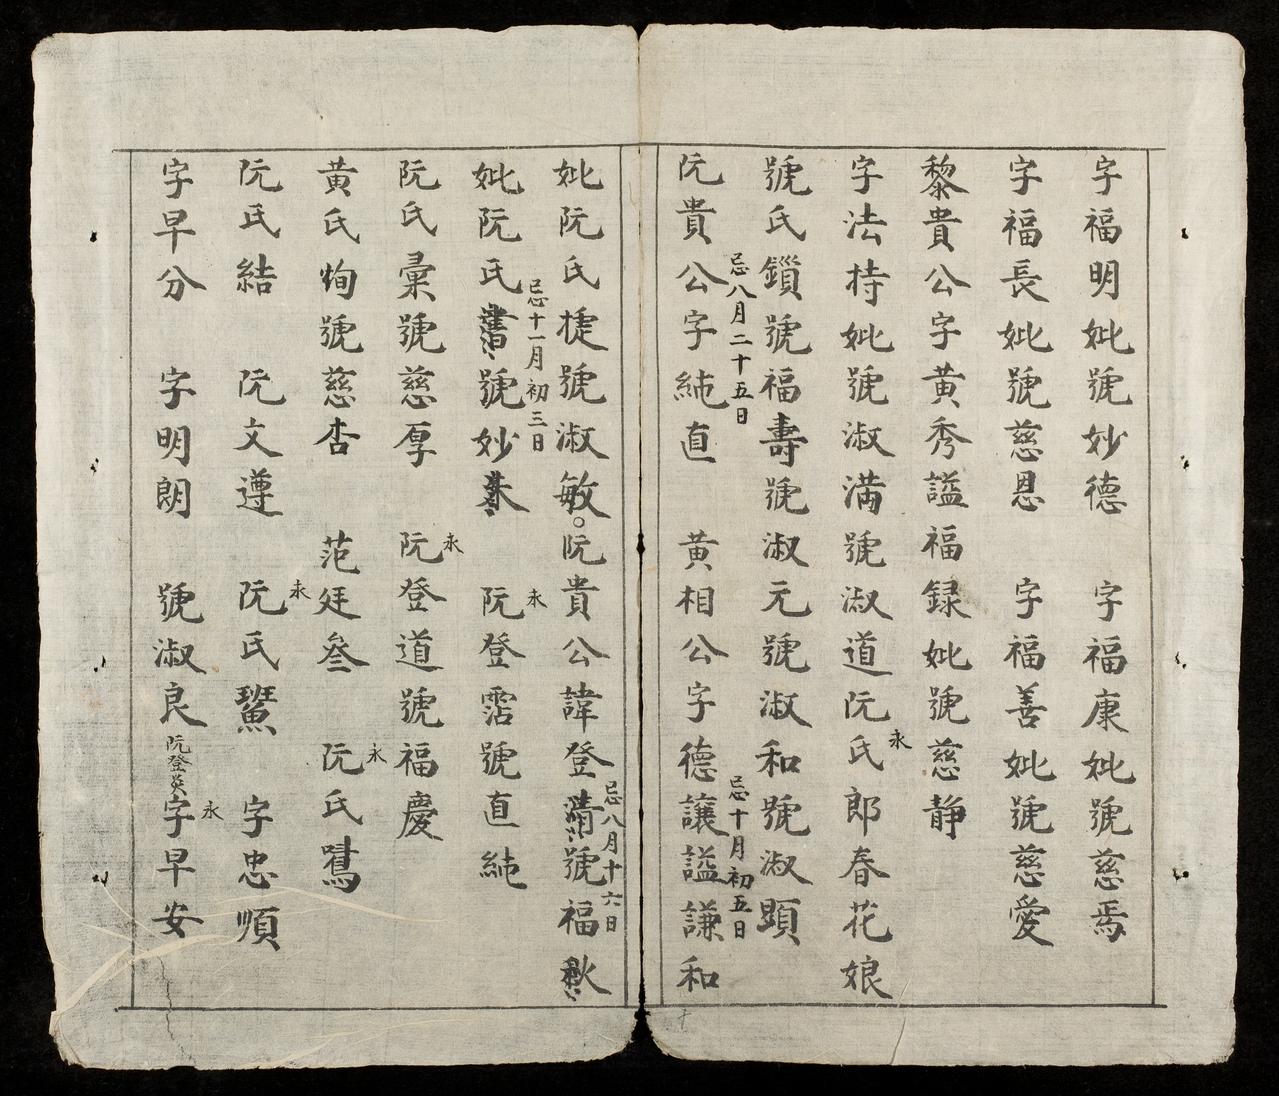 字福明妣號妙德 字福康妣號慈焉
字福長妣號慈恩 字福善妣號慈愛
黎貴公字黄秀謚福録妣號慈静
字法持妣號淑満號淑道阮氏郎春花娘
永
號氏鎖號福壽號淑元號淑和號淑顕
忌八月二十五日
忌十月初五日
阮貴公字純直 黄相公字德讓謚謙和
忌八月十六日
妣阮氏捷號淑敏。阮貴公諱登清號福秋
忌十一月初三日
永
妣阮氏書號妙 阮登霑號直純
永
阮氏彙號慈厚 阮登道號福慶
永
黄氏恂號慈杏 范廷叄 阮氏鷺
永
阮氏結 阮文遵 阮氏 字忠順
永
字早分 字明朗 號淑良 阮登英 字早安